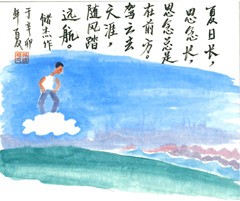 夏日长，
思念长，
思念总是
在前方。
驾云去
天涯，
随风踏
远航。
杰作
于辛卯
年夏